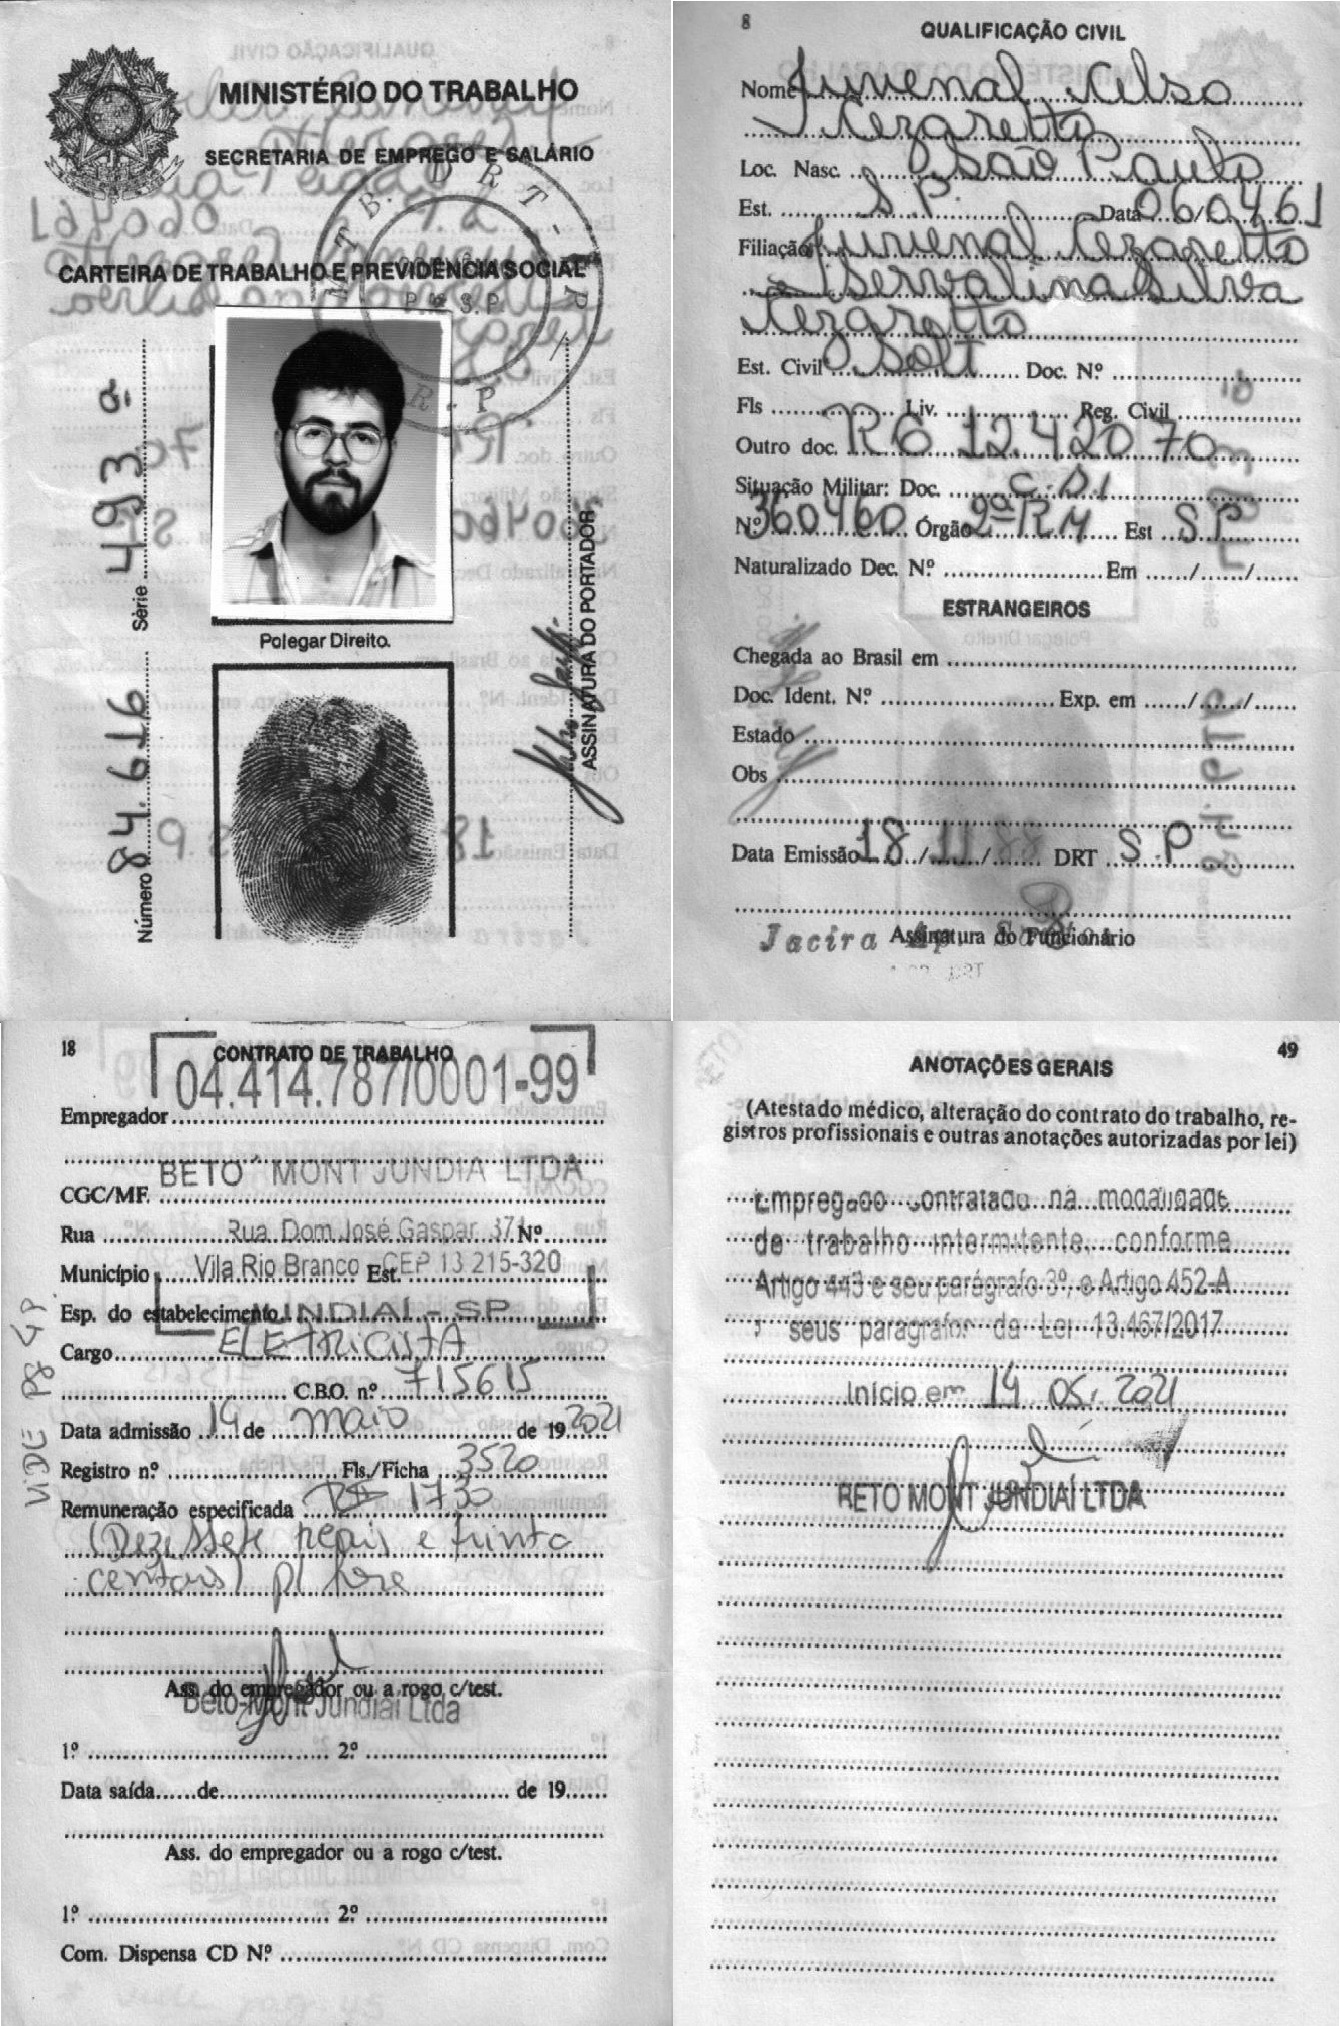 MINISTÉRIO DO TRABALHO
SECRETARIA DE EMPREGO E SALÁRIO
MTB. DRT-R
CARTEIRA DE TRABALHO E PREVIDÊNCIA SOCIAL
Número 84.616 Série 493ª
Polegar Direito.
ASSINATURA DO PORTADOR
8
QUALIFICAÇÃO CIVIL
Nome Juvenal Celso
Cezaretto
Loc. Nasc. São Paulo
Est. S.P. Data 06/04/61
Filiação Juvenal Cezaretto
e Servalina Silva
Cezaretto
Est. Civil Solt Doc. N.º
Fls Liv. Reg. Civil
Outro doc. RG 12.420 70
Situação Militar: Doc. C.D.I
N.º 360460 Órgão 2ª RM Est S.P.
Naturalizado Dec. N.º Em / /
ESTRANGEIROS
Chegada ao Brasil em
Doc. Ident. N.º Exp. em / /
Estado
Obs
Data Emissão 18/11/88 DRT S.P
Assinatura do Funcionário
Jacira Ap.
18
CONTRATO DE TRABALHO
04.414.787/0001-99
Empregador
BETO MONT JUNDIA LTDA
CGC/MF.
Rua Rua Dom José Gaspar 371 Nº
Município Vila Rio Branco Est. CEP 13.215-320
Esp. do estabelecimento JUNDIAÍ - SP
Cargo ELETRICISTA
C.B.O. nº 715615
Data admissão 14 de maio de 19 2021
Registro nº Fls./Ficha 3520
Remuneração especificada R$ 17 30
(Dezessete reais e trinta
centavos) p/ hora
Ass. do empregador ou a rogo c/test.
Beto-Mont Jundiaí Ltda
1º 2º
Data saída de de 19
Ass. do empregador ou a rogo c/test.
1º 2º
Com. Dispensa CD Nº
VIDE PG 49
49
ANOTAÇÕES GERAIS
(Atestado médico, alteração do contrato do trabalho, re-
gistros profissionais e outras anotações autorizadas por lei)
Empregado contratado na modalidade
de trabalho intermitente, conforme
Artigo 443 e seu parágrafo 3º, e Artigo 452-A
seus parágrafos da Lei 13.467/2017
Início em 14 05. 2021
BETO MONT JUNDIAÍ LTDA